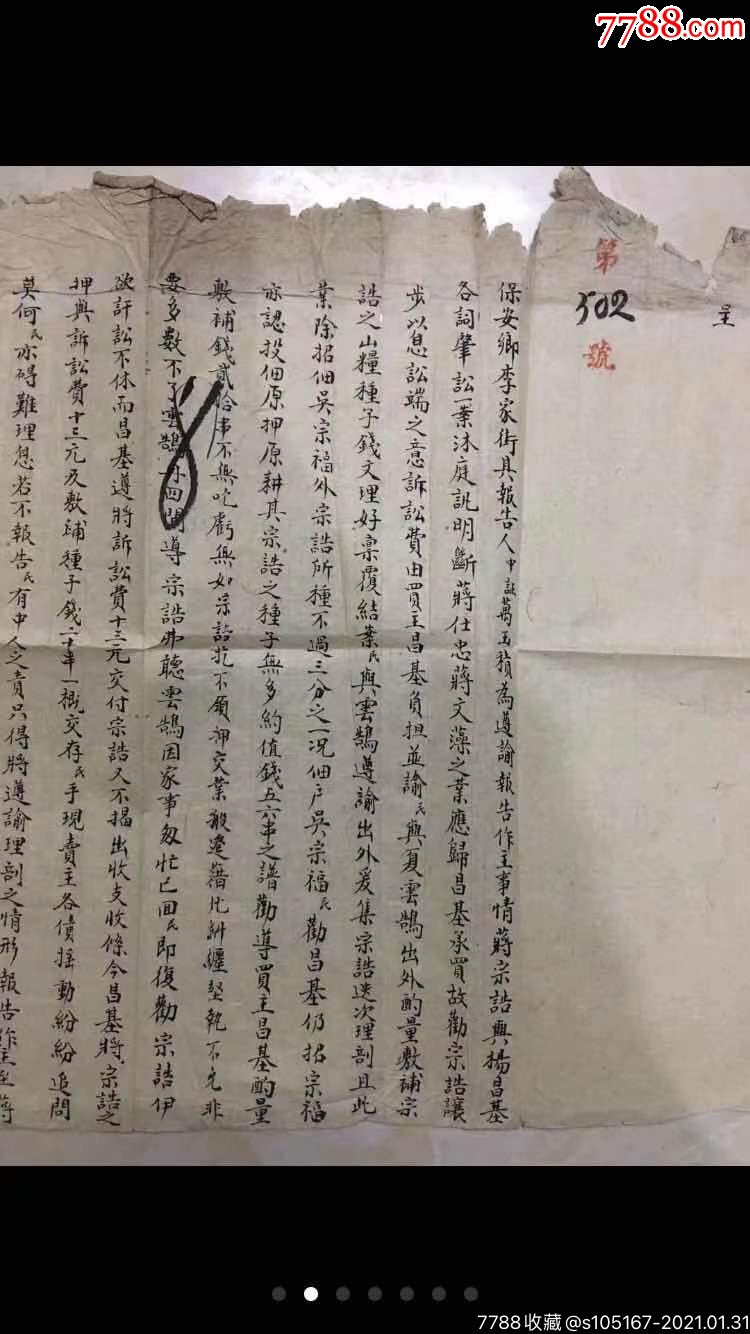 7788.com
呈
第
502
號
保安鄉李家街具報告人中証萬玉積為遵諭報告作主事情蔣宗誥與揚昌基
各詞肇訟一案沐庭訊明斷蔣仕忠蔣文藻之業應歸昌基承買故勸宗誥讓
步以息訟端之意訴訟費由買主昌基負担並諭民與夏雲鵠出外酌量敷補宗
誥之山糧種子錢文理好禀覆結案民與雲鵠遵諭出外爰集宗誥迭次理剖且此
業除招佃吳宗福外宗誥所種不過三分之一况佃户吳宗福民勸昌基仍招宗福
亦認投佃原押原耕其宗誥之種子無多約值錢五六串之譜勸導買主昌基酌量
敷補錢貳拾串不無吃虧無如宗誥抗不領押交業搬遷藉此糾纏堅執不允非
要多數不了雲鵠再四開導宗誥弗聽雲鵠因家事匆忙已回民即復勸宗誥伊
欲訐訟不休而昌基遵將訴訟費十三元交付宗誥又不揭出收支收條今昌基將宗誥之
押與訴訟費十三元及敷補種子錢二十串一概交存民手現賣主各債摇動紛紛追問
莫何民亦碍難理息若不報告民有中人之責只得將遵諭理剖之情形報告作主至蔣
7788收藏@s105167-2021.01.31